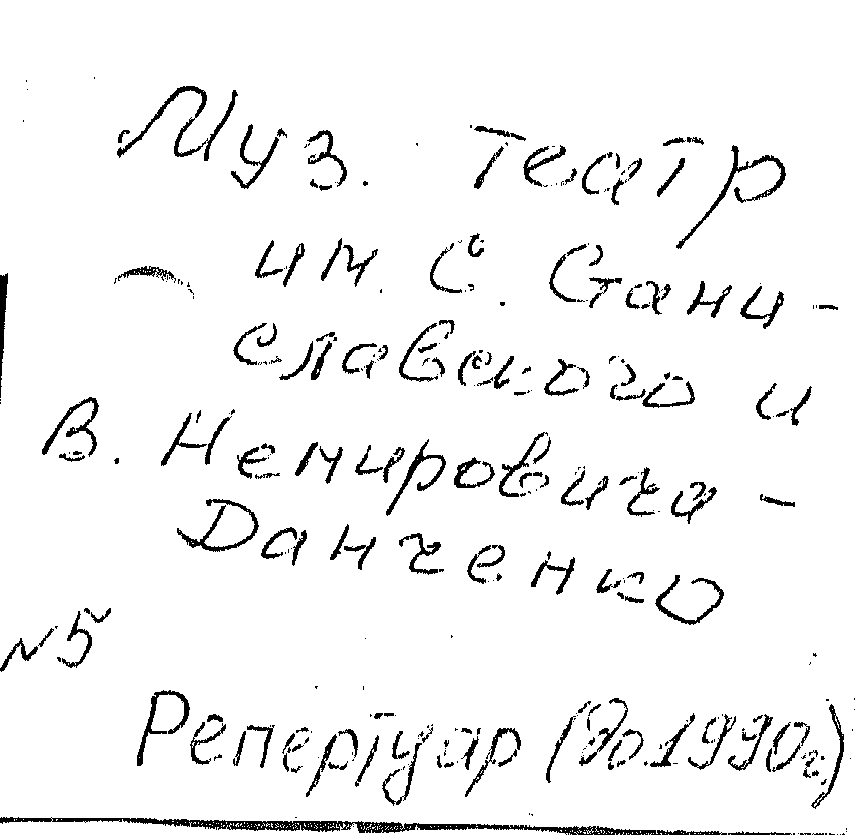 Муз. театр
им. С. Стани-
славского и
В. Немировича-
Данченко
№5
Репертуар (до 1990г.)